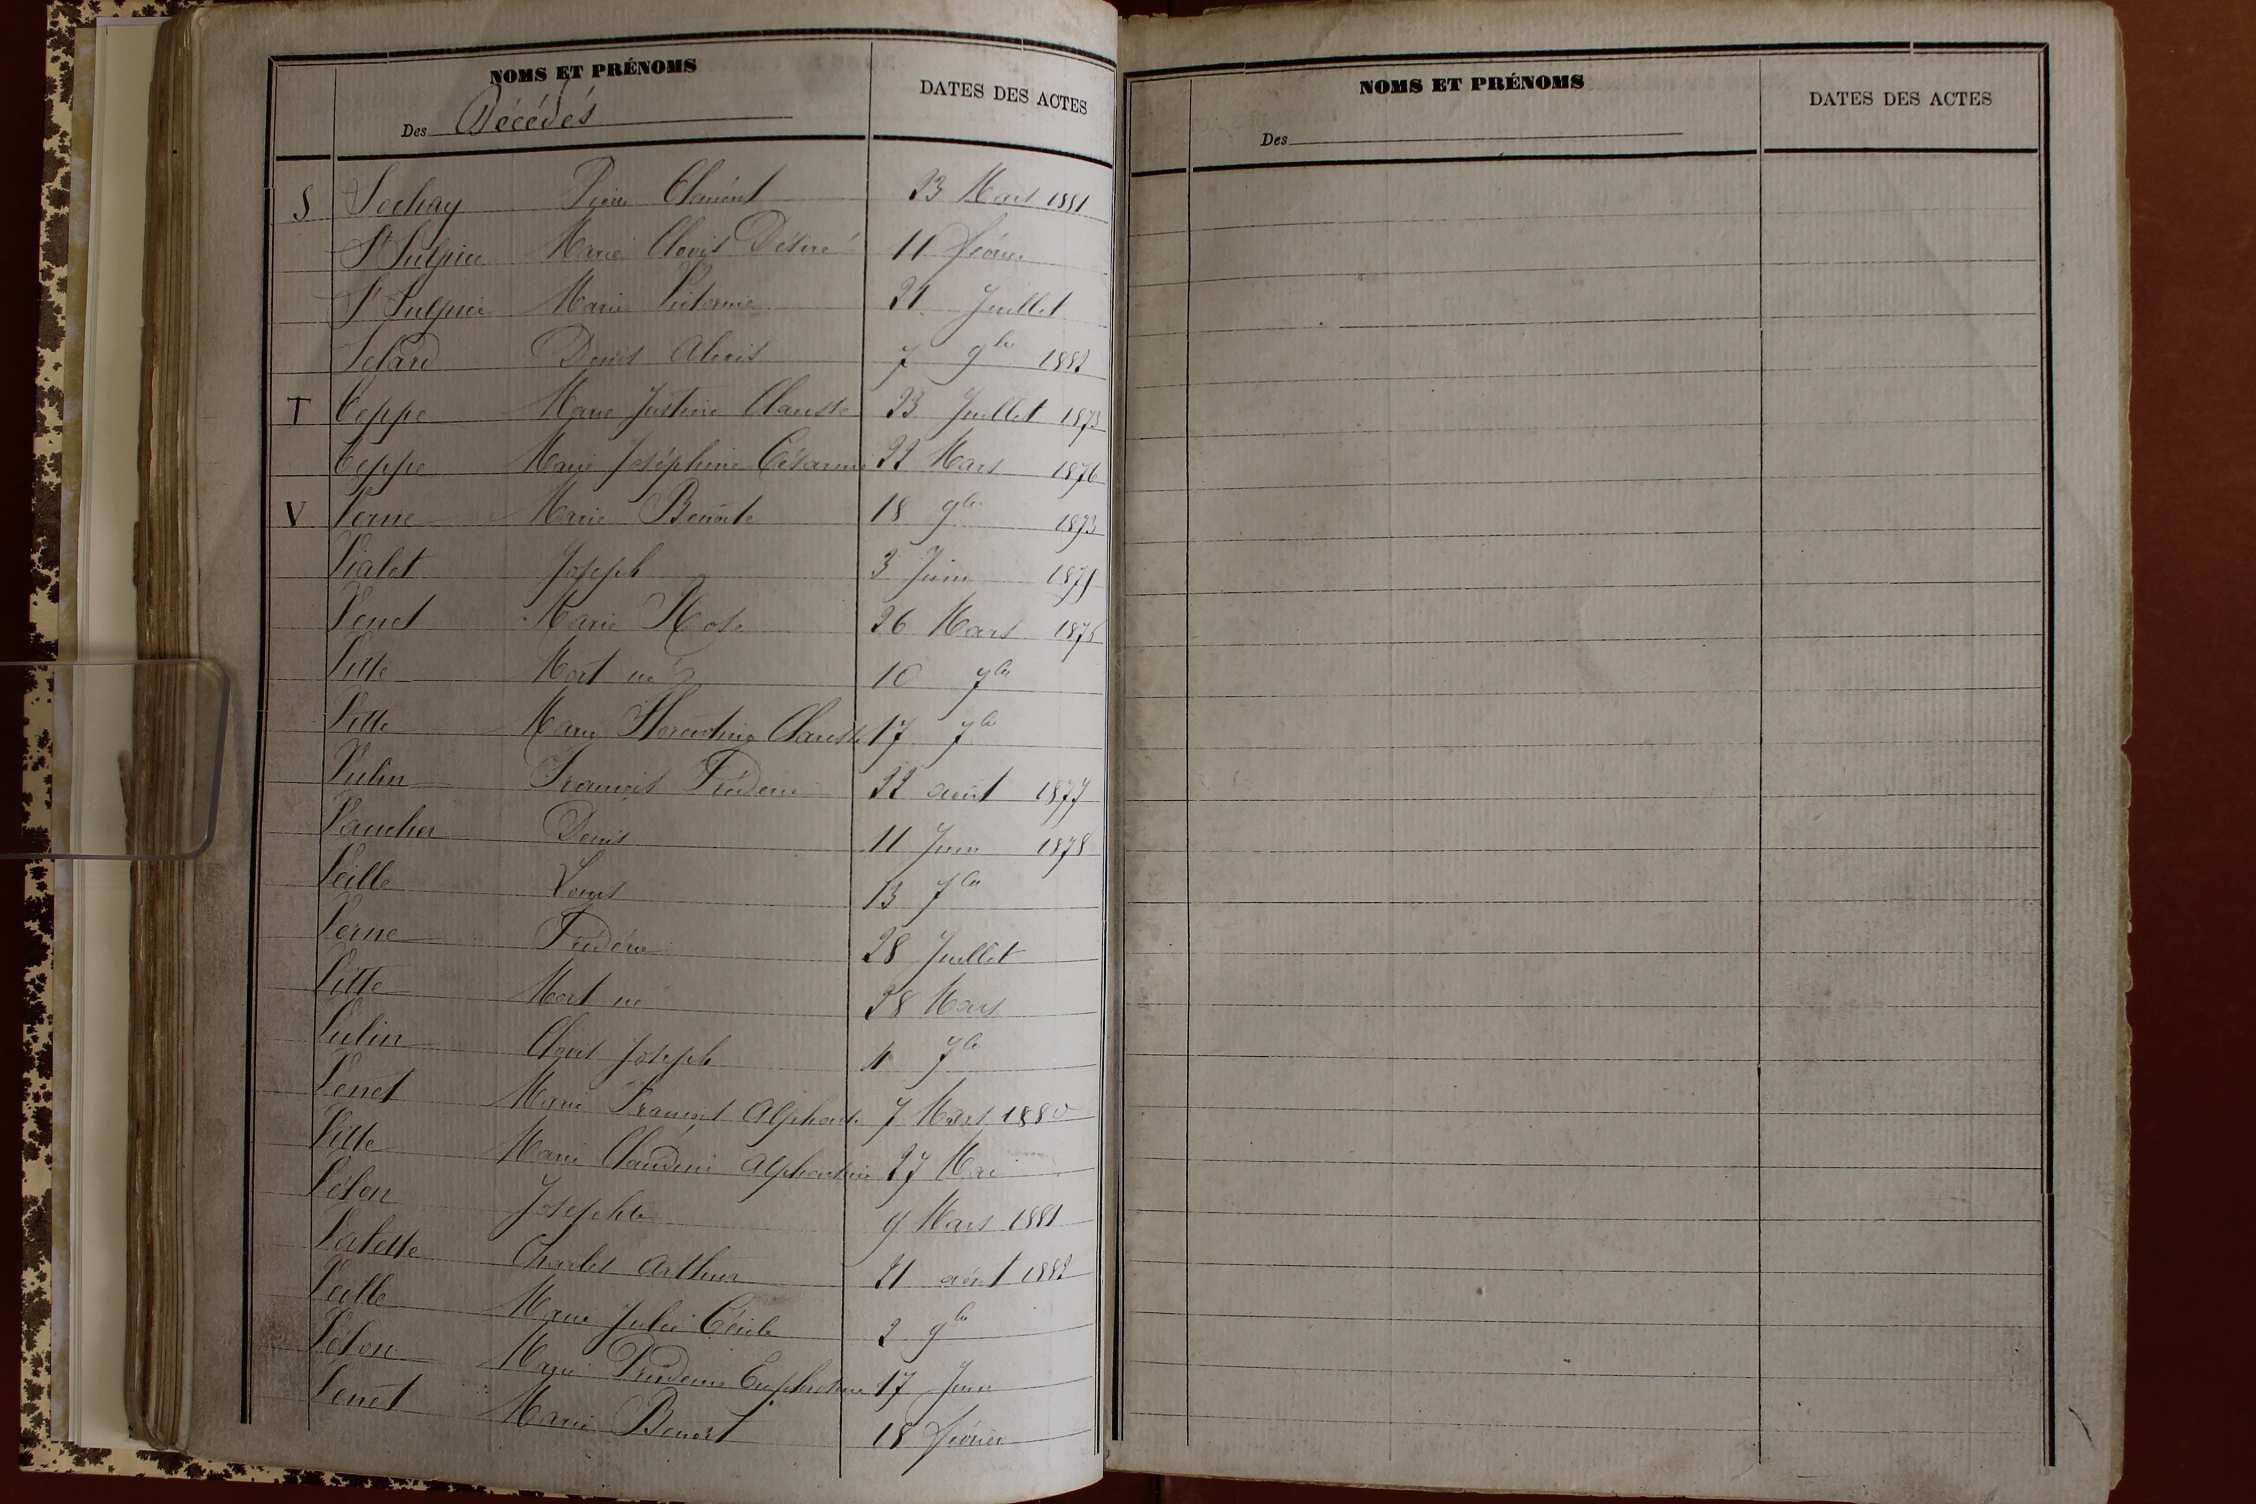 NOMS ET PRÉNOMS
DATES DES ACTES
Des Décédés
S Sochay Pierre Clément 23 Mars 1881
St Sulpice Marie Clovis Désiré 11 février
St Sulpice Marie Victorine 21 Juillet
Denis Alexis 7 9bre 1882
T Teppe Marie Justine Clarisse 23 Juillet 1873
Teppe Marie Joséphine Césarine 22 Mars 1876
V Verne Marie Benoite 18 9bre 1873
Vialet Joseph 3 Juin 1875
Venet Marie Rose 26 Mars 1876
Vitte Mort né 10 7bre
Vitte Marie Florentine Clarisse 17 7bre
Vulin François Frédéric 22 août 1877
Vaucher Denis 11 Juin 1878
Veille Louis 13 7bre
Verne Frédéric 28 Juillet
Vitte Mort né 28 Mars
Vulin Clovis Joseph 11 7bre
Venet Marie François Alphonse 7 Mars 1880
Vitte Marie Claudine Alphonsine 27 Mai
Véson Josephte 9 Mars 1881
Charles Arthur 21 août 1882
Veille Marie Julie Cécile 2 9bre
Véson Marie Prudence Euphrosine 17 Juin
Venet Marie Benoit 18 février
NOMS ET PRÉNOMS
DATES DES ACTES
Des